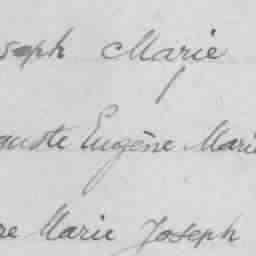 seph Marie
guste Eugène Marie
re Marie Joseph